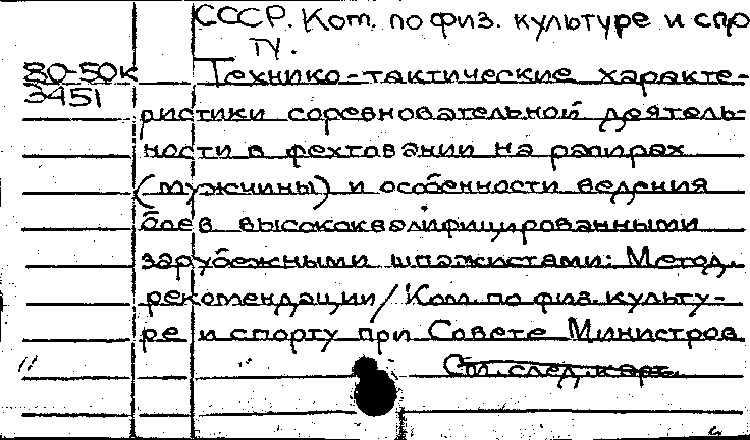 СССР. Ком. по физ. культуре и спо
ту.
80-50к Технико-тактические характе-
3451
ристики соревновательной деятель-
ности в фехтовании на рапирах
(мужчины) и особенности ведения
боев высококвалифицированными
зарубежными шпажистами: Метод.
рекомендации/Ком. по физ. культу-
ре и спорту при Совете Министров
См. след. карт.